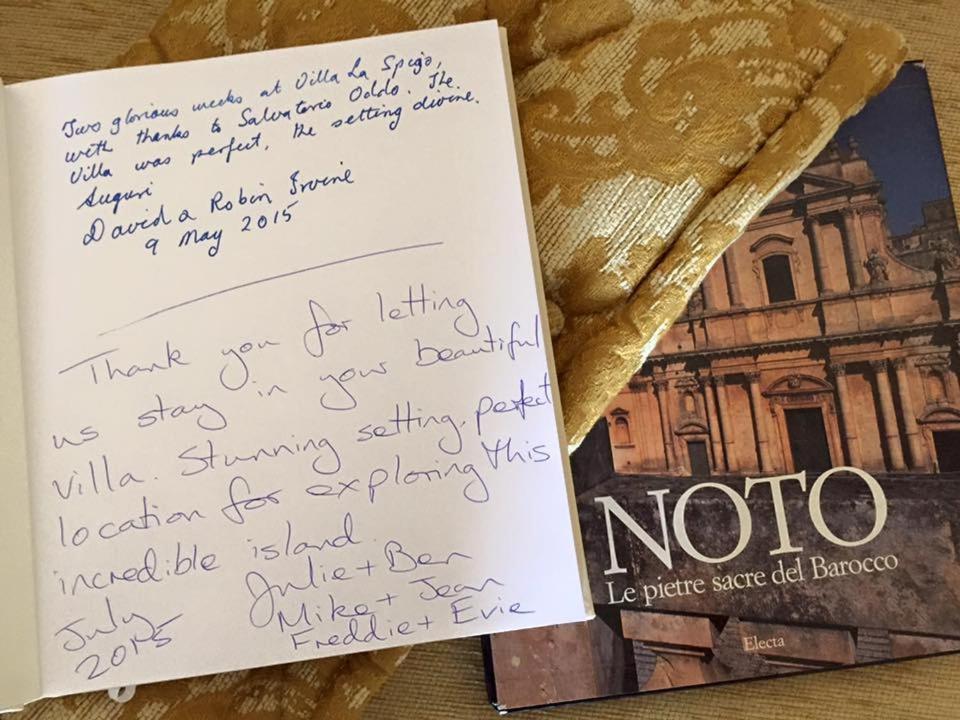 Two glorious weeks at Villa La Spiga,
with thanks to Salvatorio Oddo. The
Villa was perfect, the setting divine.
Auguri
David a Robin Irvine
9 May 2015
Thank you for letting
us stay in your beautiful
villa. Stunning setting, perfect
location for exploring this
incredible island.
July
2015
Julie + Ben
Mike + Jean
Freddie + Evie
NOTO
Le pietre sacre del Barocco
Electa